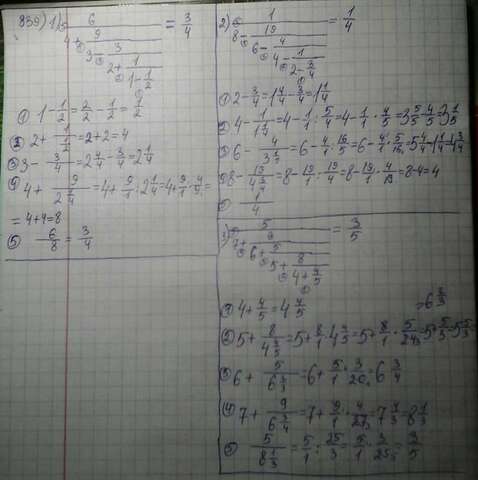 839) 1) 6 / (4 + 9 / (3 - 3 / (2 + 1 / (1 - 1/2)))) = 3/4
① 1 - 1/2 = 2/2 - 1/2 = 1/2
② 2 + 1 / (1/2) = 2 + 2 = 4
③ 3 - 3/4 = 2 4/4 - 3/4 = 2 1/4
④ 4 + 9 / (2 1/4) = 4 + 9/1 : 2 1/4 = 4 + 9/1 · 4/9 =
= 4 + 4 = 8
⑤ 6/8 = 3/4
2) 1 / (8 - 19 / (6 - 4 / (4 - 1 / (2 - 3/4)))) = 1/4
① 2 - 3/4 = 1 4/4 - 3/4 = 1 1/4
② 4 - 1 / (1 1/4) = 4 - 1/1 : 5/4 = 4 - 1/1 · 4/5 = 3 5/5 - 4/5 = 3 1/5
③ 6 - 4 / (3 1/5) = 6 - 4/1 : 16/5 = 6 - 4/1 · 5/16
④ 8 - 19 / (4 3/4) = 8 - 19/1 : 19/4 = 8 - 19/1 · 4/19 = 8 - 4 = 4
⑤ 1/4
3) 5 / (7 + 9 / (6 + 5 / (5 + 8 / (4 + 4/5)))) = 3/5
① 4 + 4/5 = 4 4/5
② 5 + 8 / (4 4/5) = 5 + 8/1 : 4 4/5 = 5 + 8/1 · 5/24 = 5 + 5/3 = 5 5/3
= 6 2/3
③ 6 + 5 / (6 2/3) = 6 + 5/1 · 3/20 = 6 3/4
④ 7 + 9 / (6 3/4) = 7 + 9/1 · 4/27 = 7 4/3 = 8 1/3
⑤ 5 / (8 1/3) = 5/1 : 25/3 = 5/1 · 3/25 = 3/5